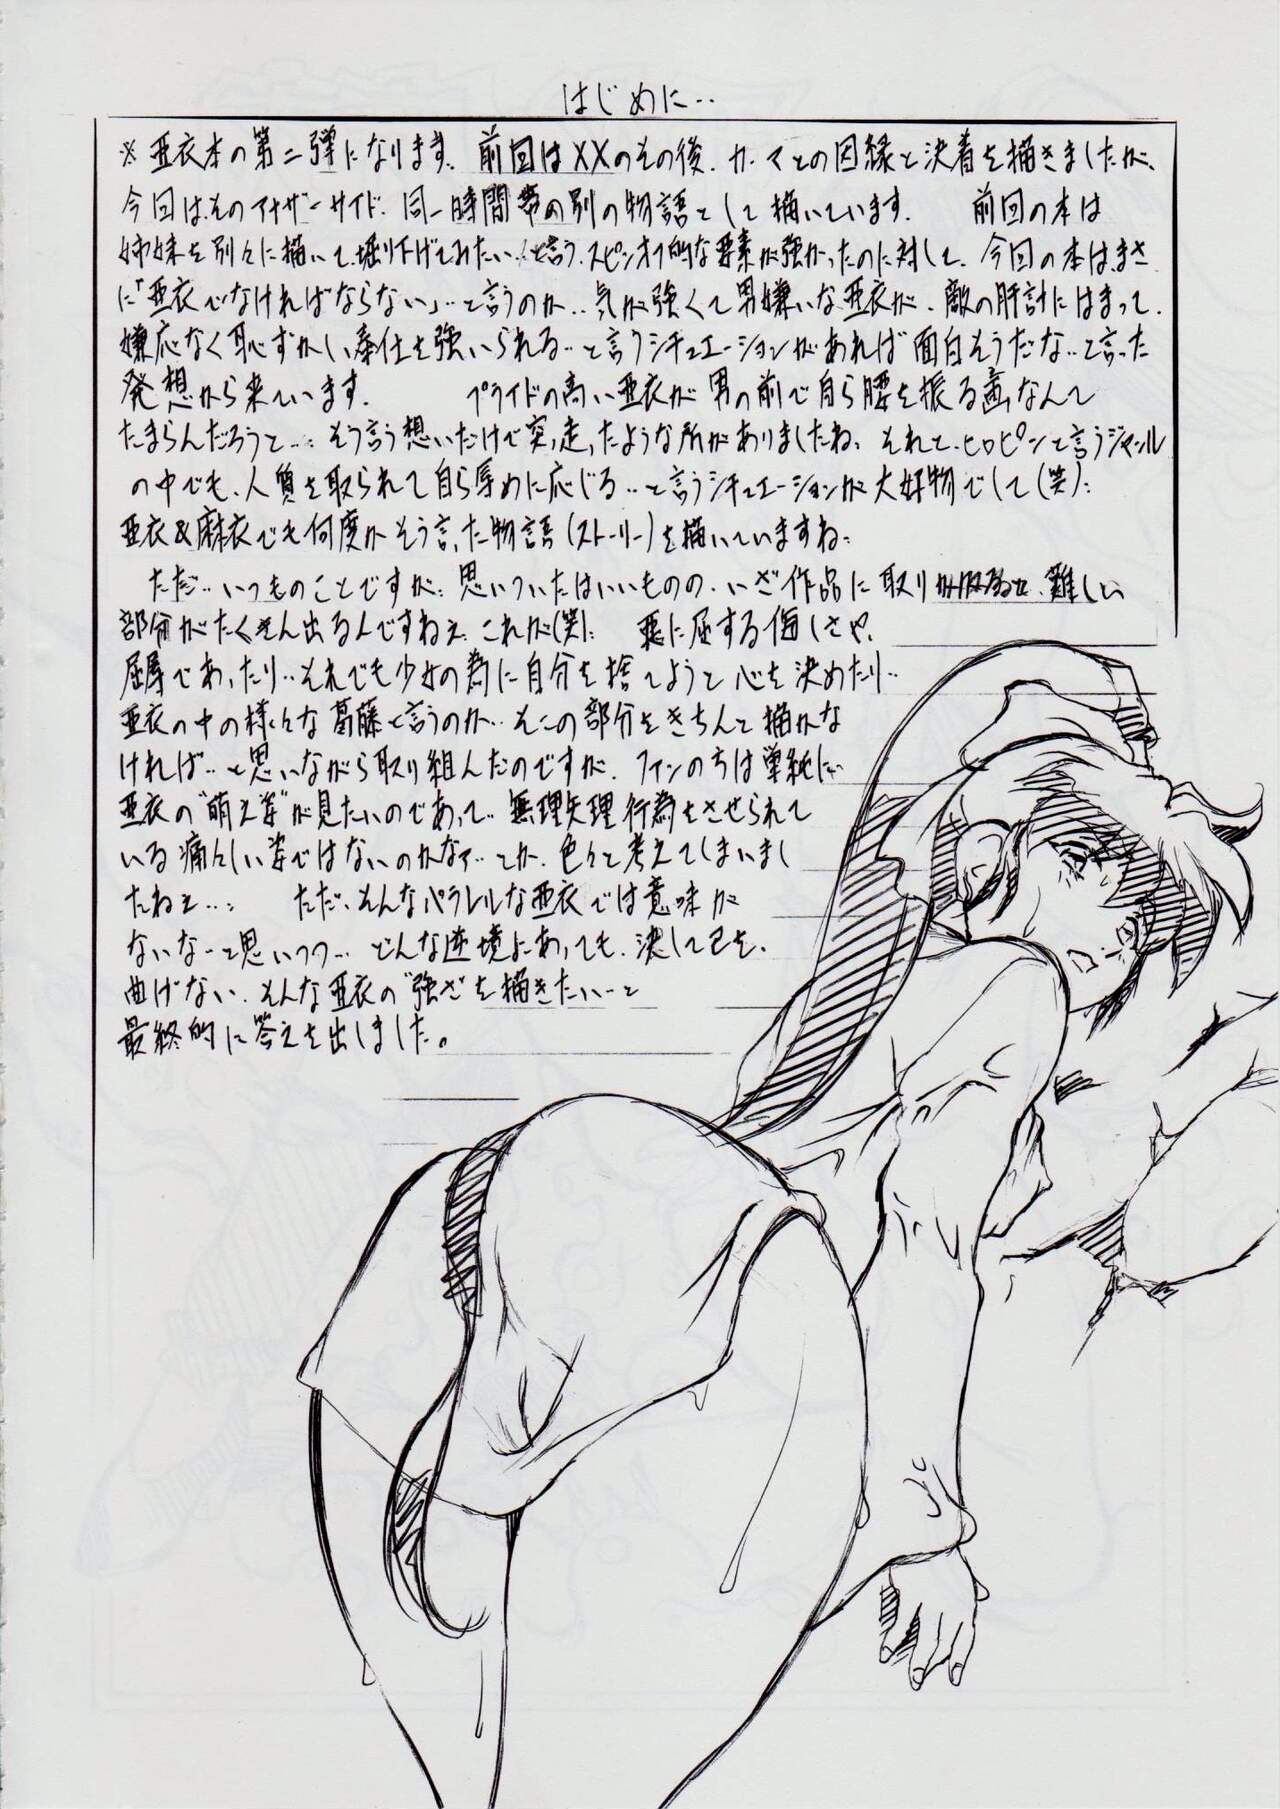 はじめに‥
※亜衣本の第二弾になります。前回はXXのその後、カーマとの因縁と決着を描きましたが、
今回は、そのアナザーサイド、同一時間帯の別の物語として描いています。 前回の本は
姉妹を別々に描いて、掘り下げてみたい、と言う、スピンオフ的な要素が強かったのに対して、今回の本は、まさ
に「亜衣でなければならない」‥と言うのか‥気が強くて男嫌いな亜衣が、敵の肝計にはまって、
嫌応なく恥ずかしい奉仕を強いられる‥と言うシチュエーションがあれば面白そうだな‥と言った
発想から来ています。 プライドの高い亜衣が男の前で自ら腰を振る画なんて
たまらんだろうと…:そう言う想いだけで突っ走ったような所がありましたね、それと、ヒロピンと言うジャンル
の中でも、人質を取られて自ら辱めに応じる‥と言うシチュエーションが大好物でして(笑):
亜衣&麻衣でも何度かそう言った物語(ストーリー)を描いていますね:
ただ‥いつものことですが:思いついたはいいものの、いざ作品に取りかかると、難しい
部分がたくさん出るんですねぇ:これが(笑): 悪に屈する悔しさや、
屈辱であったり‥それでも少女の為に自分を捨てようと心を決めたり‥
亜衣の中の様々な葛藤と言うのか‥そこの部分をきちんと描かな
ければ‥と思いながら取り組んだのですが、ファンの方は単純に
亜衣の"萌え姿"が見たいのであって‥無理矢理行為をさせられて
いる痛々しい姿ではないのかなァ‥とか、色々と考えてしまいまし
たねぇ…: ただ、そんなパラレルな亜衣では意味が
ないなーと思いつつ…どんな逆境にあっても、決して己を、
曲げない、そんな亜衣の"強さ"を描きたいーと
最終的に答えを出しました。